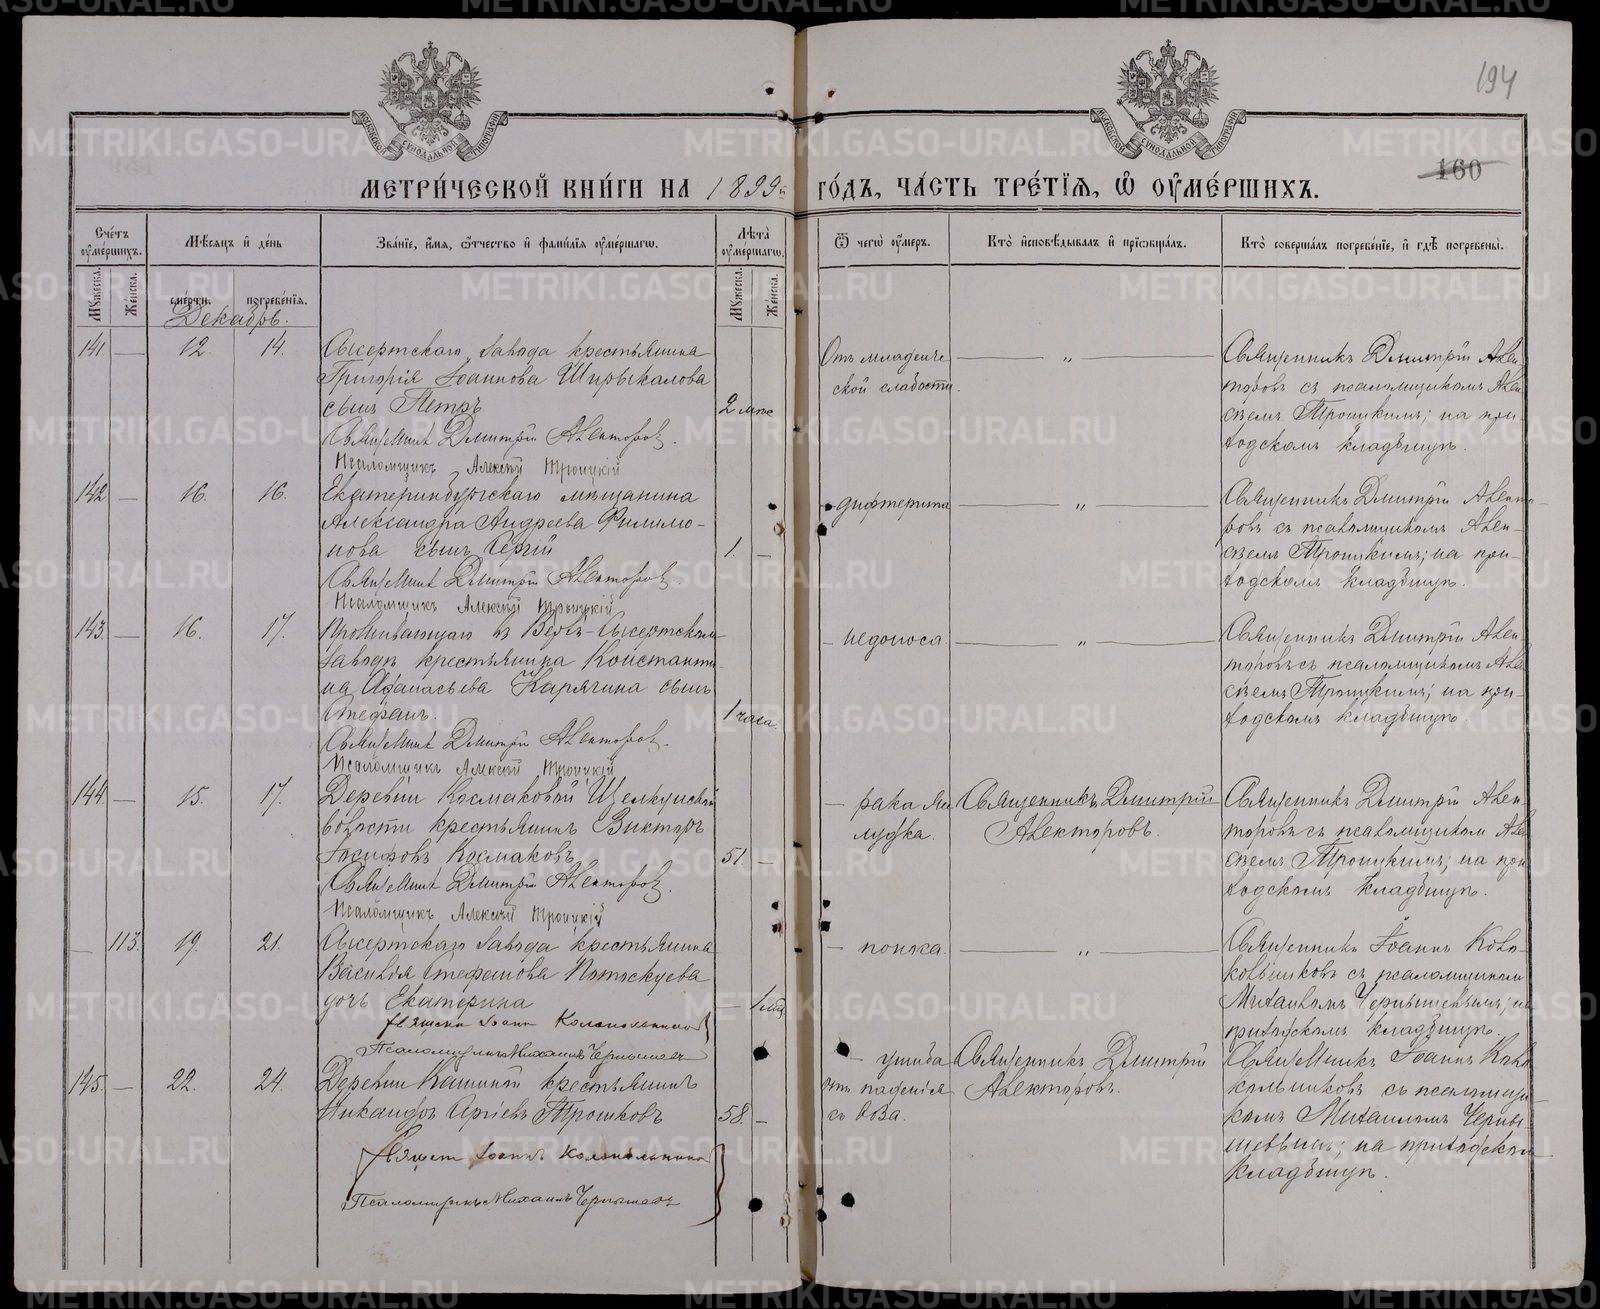 194
160
МЕТРИ́ЧЕСКОЙ КНИ́ГИ НА 1899й ГО́ДЪ, ЧА́СТЬ ТРЕ́ТІЯ, Ѿ ОУМЕ́РШИХЪ.
Сче́тъ оуме́ршихъ.
Мѣ́сяцъ и де́нь
Зва́ніе, и́мя, ѻ҆́тчество и фами́лія оуме́ршагѡ.
Лѣта̀ оуме́ршагѡ.
Ѿ чегѡ̀ оу́меръ.
Кто̀ исповѣ́дывалъ и пріѡбща́лъ.
Кто̀ соверша́лъ погребе́ніе, и гдѣ̀ погребены̀.
Му́жеска. Же́нска. сме́рти. погребе́нія. Му́жеска. Же́нска.
Декабрь.
141. — 12. 14.
Сысертскаго завода крестьянина
Григорія Іоаннова Ширыкалова
сынъ Петръ
2 мѣс
Священникъ Дмитрій Авекторовъ.
Псаломщикъ Алексѣй Троицкій
Отъ младенче
ской слабости.
— „ —
Священникъ Дмитрій Авек
торовъ съ псаломщикомъ Алек
сѣемъ Троицкимъ; на при
ходскомъ кладбищѣ.
142 — 16. 16.
Екатеринбургскаго мѣщанина
Александра Андреева Филимо-
нова сынъ Сергій
1. —
Священникъ Дмитрій Авекторовъ.
Псаломщикъ Алексѣй Троицкій
- дифтерита
— „ —
Священникъ Дмитрій Авекто-
ровъ съ псаломщикомъ Алек-
сѣемъ Троицкимъ; на при-
ходскомъ кладбищѣ.
143. — 16. 17.
Проживающаго въ Верхъ-Сысертскомъ
заводѣ крестьянина Константи-
на Афанасьева Карягина сынъ
Стефанъ.
1 часа
Священникъ Дмитрій Авекторовъ.
Псаломщикъ Алексѣй Троицкій
- недоноса
— „ —
Священникъ Дмитрій Авек-
торовъ съ псаломщикомъ Алек
сѣемъ Троицкимъ; на при-
ходскомъ кладбищѣ.
144. — 15. 17.
Деревни Космаковой Щелкунской
волости крестьянинъ Викторъ
Іосифовъ Космаковъ
51. —
Священникъ Дмитрій Авекторовъ.
Псаломщикъ Алексѣй Троицкій
— рака же
лудка.
Священникъ Дмитрій
Авекторовъ.
Священникъ Дмитрій Авек-
торовъ съ псаломщикомъ Алек
сѣемъ Троицкимъ; на при
ходскомъ кладбищѣ.
— 113. 19. 21.
Сысертскаго завода крестьянина
Василія Стефанова
дочь Екатерина
Священ Іоаннъ Колокольников
Псаломщикъ Михаилъ Чернышевъ
— поноса.
— „ —
Священникъ Іоаннъ Коло
кольниковъ съ псаломщикомъ
Михаиломъ Чернышевымъ; на
приходскомъ кладбищѣ.
145. — 22. 24.
Деревни Кашиной крестьянинъ
Никандръ Сергіевъ Трошковъ
58. —
Священ Іоаннъ Колокольников
Псаломщикъ Михаилъ Чернышевъ
— ушиба
отъ паденія
съ воза.
Священникъ Дмитрій
Авекторовъ.
Священникъ Іоаннъ Коло
кольниковъ съ псаломщи
комъ Михаиломъ Черны-
шевымъ; на приходскомъ
кладбищѣ.
METRIKI.GASO-URAL.RU